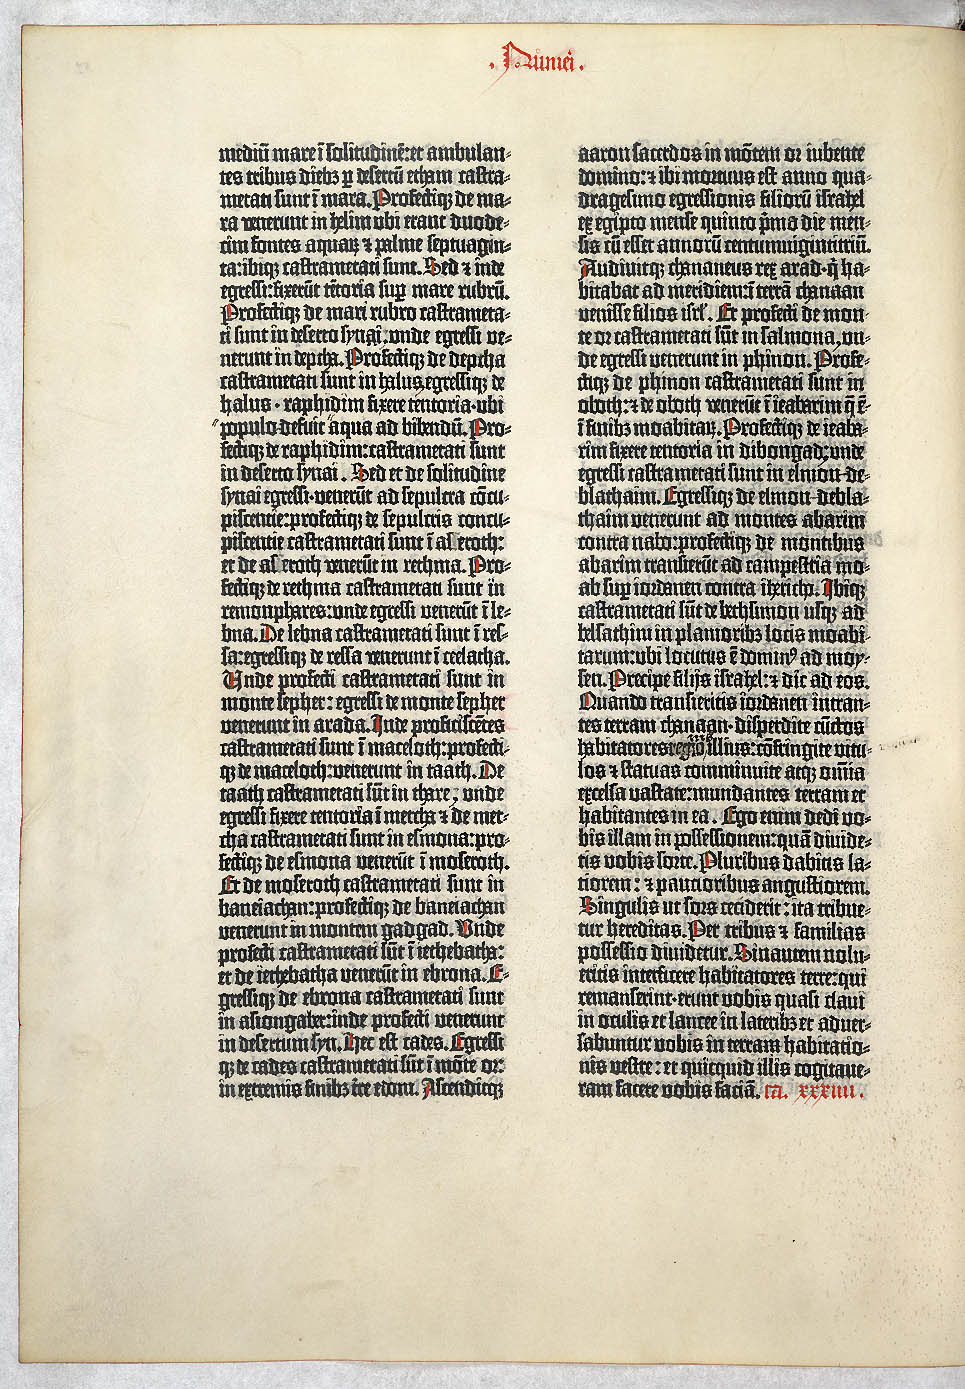 . Nũmeri .
mediũ mare ĩ solitudinẽ: et ambulan-
tes tribus diebꝫ ꝑ desertũ etham castra-
metati sunt ĩ mara. Profectiqꝫ de ma-
ra venerunt in helim ubi erant duode-
cim fontes aquaꝝ ⁊ palme septuagin-
ta: ibiqꝫ castrametati sunt. Sed ⁊ inde
egressi: fixerũt tẽtoria suꝑ mare rubrũ.
Profectiqꝫ de mari rubro castrameta-
ti sunt in deserto syn. unde egressi ve-
nerunt in depcha. Profectiqꝫ de depcha
castrametati sunt in halus. egressiqꝫ de
halus . raphidim fixere tentoria . ubi
populo defuit aqua ad bibendũ. Pro-
fectiqꝫ de raphidim: castrametati sunt
in deserto synai . Sed et de solitudine
synai egressi . venerũt ad sepulcra cõcu-
piscentie: profectiqꝫ de sepulcris concu-
piscentie castrametati sunt ĩ aseroth:
et de aseroth venerũt in rethma. Pro-
fectiqꝫ de rethma castrametati sunt in
remonphares: unde egressi venerũt ĩ le-
bna. De lebna castrametati sunt ĩ res-
sa: egressiqꝫ de ressa venerunt ĩ ceelatha.
Unde profecti castrametati sunt in
monte sepher: egressi de monte sepher
venerunt in arada. Inde proficiscẽtes
castrametati sunt ĩ maceloth: profecti-
qꝫ de maceloth: venerunt in taath. De
taath castrametati sũt in thare; unde
egressi fixere tentoria ĩ metcha ⁊ de met-
cha castrametati sunt in esmona: pro-
fectiqꝫ de esmona venerũt ĩ moseroth.
Et de moseroth castrametati sunt in
baneiachan: profectiqꝫ de baneiachan
venerunt in montem gadgad. Unde
profecti castrametati sũt ĩ iethebatha:
et de iethebatha venerũt in ebrona. E-
gressiqꝫ de ebrona castrametati sunt
in asiongaber: inde profecti venerunt
in desertum syn. Hec est cades. Egressi
qꝫ de cades castrametati sũt ĩ mõte or:
in extremis finibꝫ tre edom. Ascenditqꝫ
aaron sacerdos in mõtem or iubente
domino: ⁊ ibi mortuus est anno qua-
dragesimo egressionis filiorũ israhel
ex egipto mense quinto pͥma die men-
sis cũ esset annorũ centumvigintitriũ.
Audivitqꝫ chananeus rex arad . qͥ ha-
bitabat ad meridiem: ĩ terrã chanaan
venisse filios isrl̕. Et profecti de mon-
te or castrametati sũt in salmona, un-
de egressi venerunt in phinon. Profe-
ctiqꝫ de phinon castrametati sunt in
oboth: ⁊ de oboth venerũt ĩ ieabarim q̃ ẽ
ĩ finibꝫ moabitaꝝ. Profectiqꝫ de ieaba-
rim fixere tentoria in dibongad; unde
egressi castrametati sunt in elmon de-
blathaim. Egressiqꝫ de elmon debla-
thaim venerunt ad montes abarim
contra nabo: profectiqꝫ de montibus
abarim transierũt ad campestria mo-
ab suꝑ iordanen contra iherichp. Ibiqꝫ
castrametati sũt de bethsimon usqꝫ ad
belsathim in planioribꝫ locis moabi-
tarum: ubi locutus ẽ dominꝰ ad moy-
sen. Precipe filijs israhel: ⁊ dic ad eos.
Quando transieritis iordanen intran-
tes terram chanaan . disperdite cũctos
habitatores regiõis illius: cõfringite titu-
los ⁊ statuas comminuite atqꝫ om̃ia
excelsa vastate: mundantes terram et
habitantes in ea . Ego enim dedi vo-
bis illam in possessionem: quã divide-
tis vobis sorte. Pluribus dabitis la-
tiorem: ⁊ paucioribus angustiorem.
Singulis ut sors ceciderit: ita tribue-
tur hereditas. Per tribus ⁊ familias
possessio dividetur. Sin autem nolu-
eritis interficere habitatores terre: qui
remanserint . erunt vobis quasi clavi
in oculis et lancee in lateribꝫ et adver-
sabuntur vobis in terram habitatio-
nis vestre: et quicquid illis cogitave-
ram facere vobis faciã. ca. xxxiiii.